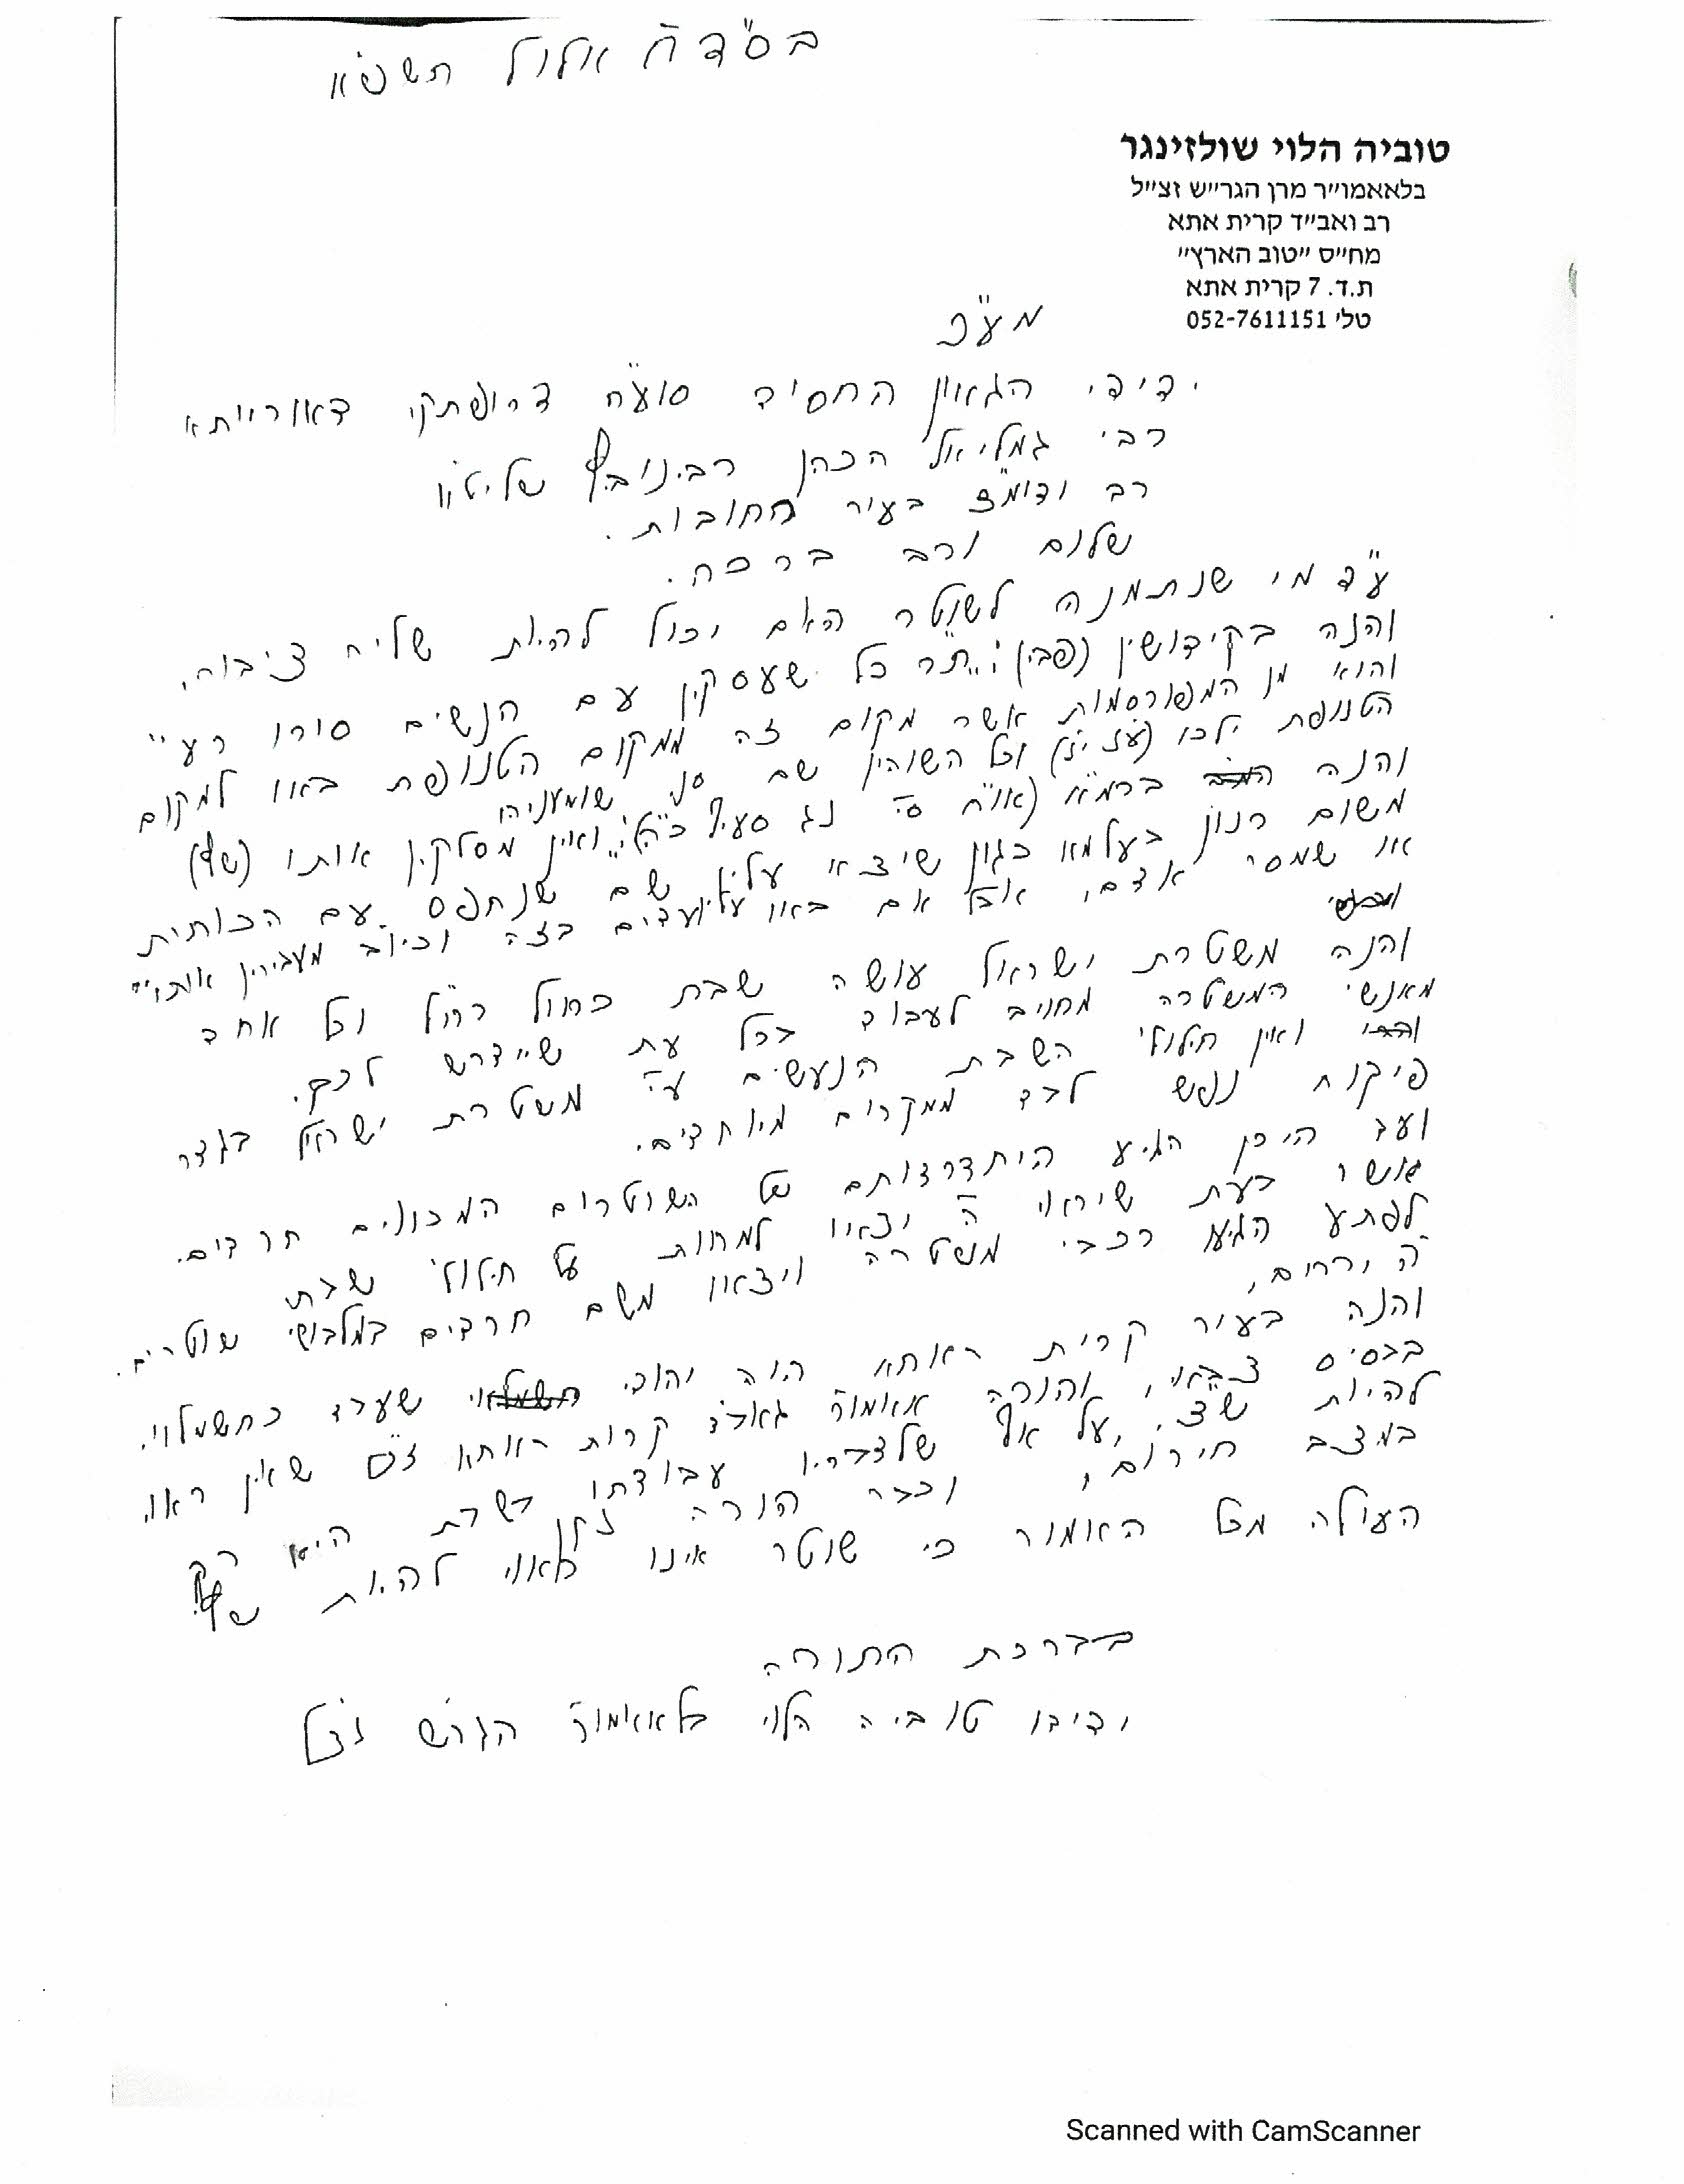 בס"ד ח' אלול תשפ"א
טוביה הלוי שולזינגר
בלאאמו״ר מרן הגרי״ש זצ״ל
רב ואב״ד קרית אתא
מח״ס ״טוב הארץ״
ת.ד. 7 קרית אתא
טל׳ 052-7611151
מע"כ
ידידי הגאון החסיד סוע"ה דרופתקי דאורייתא
רבי גמליאל הכהן רבינוביץ שליט"א
רב ודומ"צ בעיר רחובות.
שלום ורב ברכה.
ע"ד מי שנתמנה לשוטר האם יכול להיות שליח ציבור,
והנה בקידושין (פב.) : "ת"ר כל שעסקיו עם הנשים סורו רע"
והוא מן המפורסמות אשר מקום זה ממקום הטנופת באו למקום
הטנופת ילכו וכל השוהין שם סני שומעניה
והנה ברמ"א (או"ח סי' נג סעיף כ"ה): "ואין מסלקין אותו (ש"ץ)
משום רנון בעלמא כגון שיצא עליו שם שנתפס עם הכותית
או שמסר אדם, אבל אם באו עליו עדים בזה וכיוב מעבירין אותו"
והנה משטרת ישראל עושה שבת כחול רח"ל וכל אחד
מאנשי המשטרה מחויב לעבוד בכל עת שיידרש לכך.
ואין חילולי השבת הנעשים ע"י משטרת ישראל בגדר
פיקוח נפש לבד ממקרים מיוחדים.
ועד היכן הגיע הידרדרותם של השוטרים המכונים חרדים.
אשר בעת שיראי ה' יצאו למחות על חילולי שבת
לפתע הגיעו רכבי משטרה ויצאו משם חרדים במלבושי שוטרים.
ה' ירחם,
והנה בעיר קרית אתא היה יהודי שעבד כחשמלאי
בבסיס צבאי, והורה אאמו"ר גאב"ד קרית אתא זצ"ל שאין ראוי
להיות ש"צ, על אף שלדבריו עבודתו בשבת היא רק
במצב חירום, וכבר הורה זקן
העולה מכל האמור כי שוטר אינו ראוי להיות ש"ץ.
בברכת התורה
ידידו טוביה הלוי בלאאמו"ר הגרי"ש זצ"ל
Scanned with CamScanner